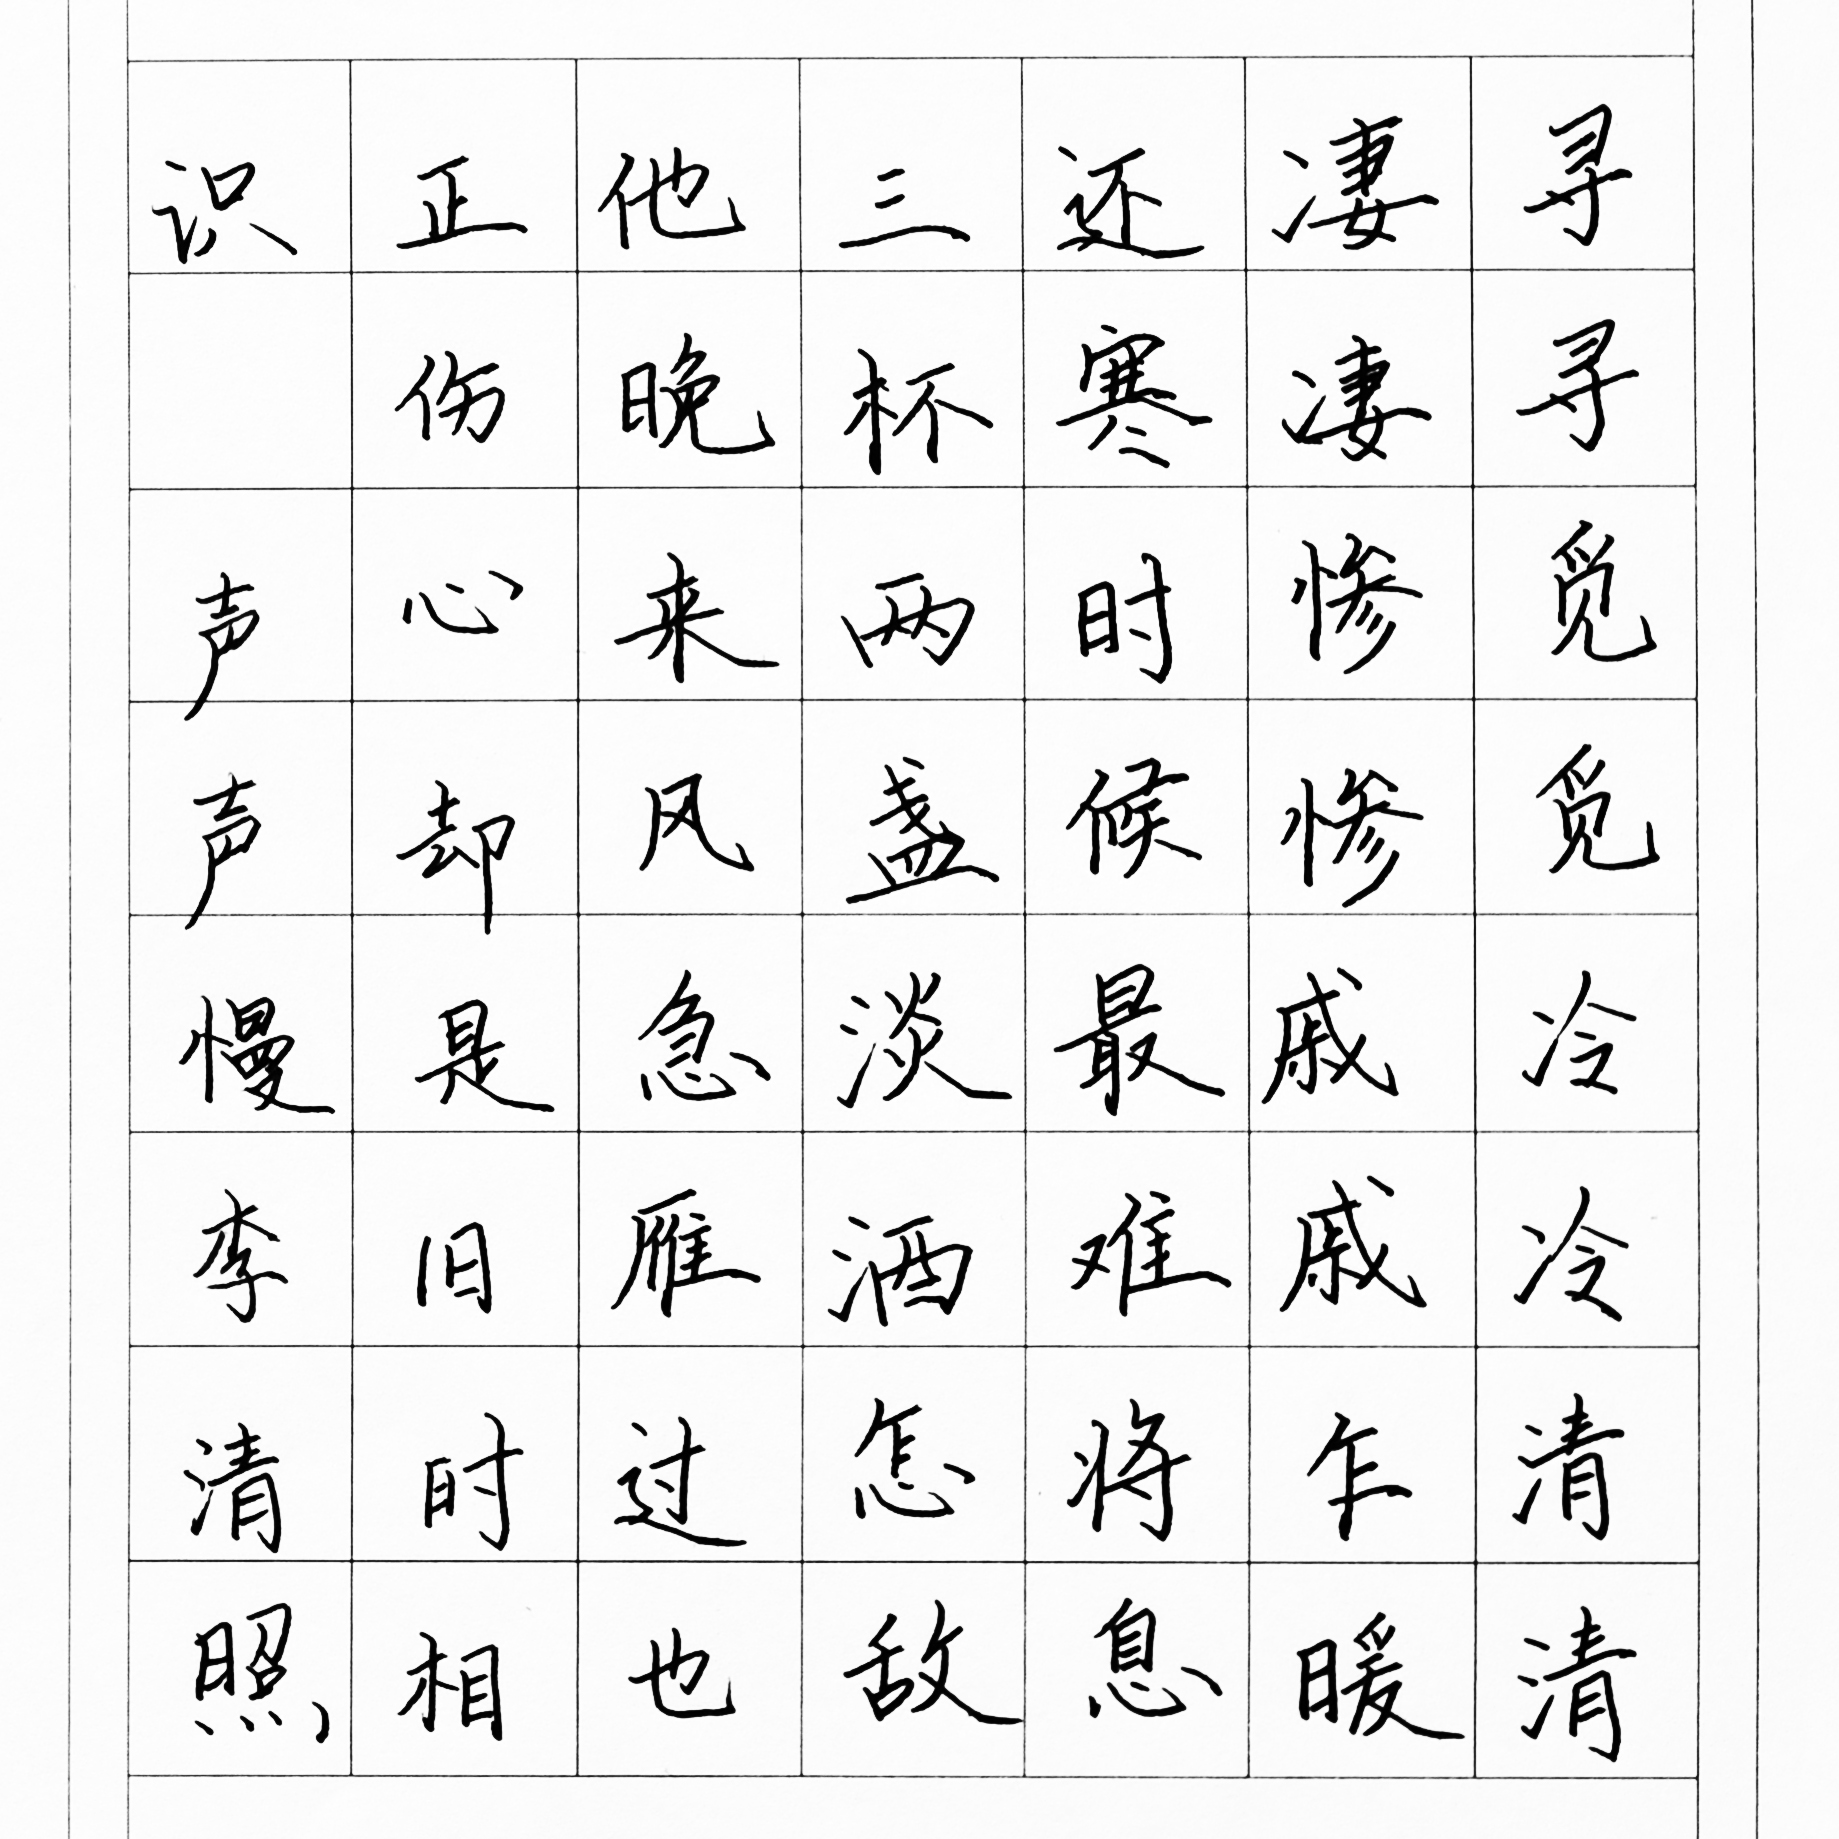 寻寻觅觅冷冷清清
凄凄惨惨戚戚乍暖
还寒时候最难将息
三杯两盏淡酒怎敌
他晚来风急雁过也
正伤心却是旧时相
识 声声慢李清照